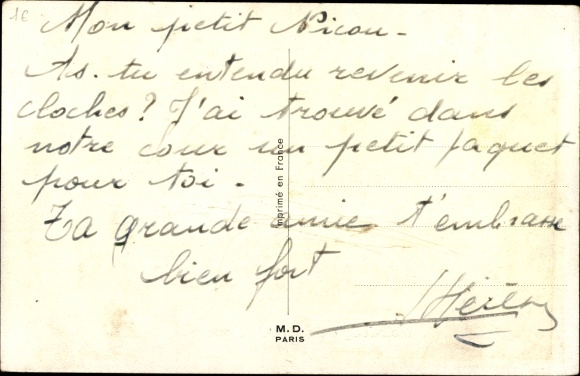 1€
Mon petit Nicou -
As-tu entendu revenir les
cloches? J'ai trouvé dans
notre cour un petit paquet
pour toi -
Ta grande amie t'embrasse
bien fort
imprimé en France
M.D.
PARIS